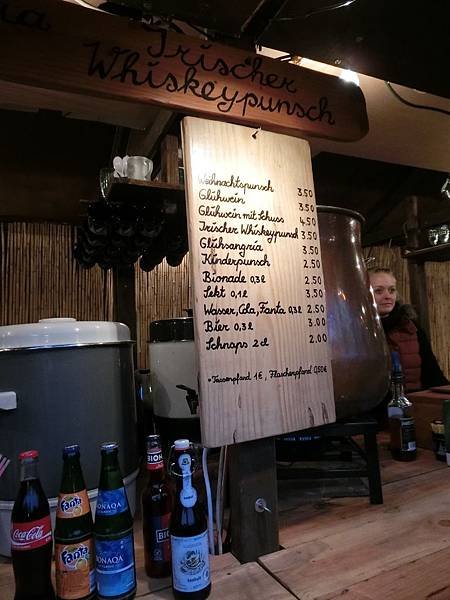 Irischer
Whiskeypunsch
Weihnachtspunsch 3.50
Glühwein 3.50
Glühwein mit Schuss 4.50
Irischer Whiskeypunsch 3.50
Glühsangria 3.50
Kinderpunsch 2.50
Bionade 0,3l 2.50
Sekt 0,1l 3.50
Wasser, Cola, Fanta 0,3l 2.50
Bier 0,3l 3.00
Schnaps 2cl 2.00
*Tassenpfand 1€, Flaschenpfand 0,50€
Coca-Cola
Fanta
Fanta
BONAQA
BION
BIO